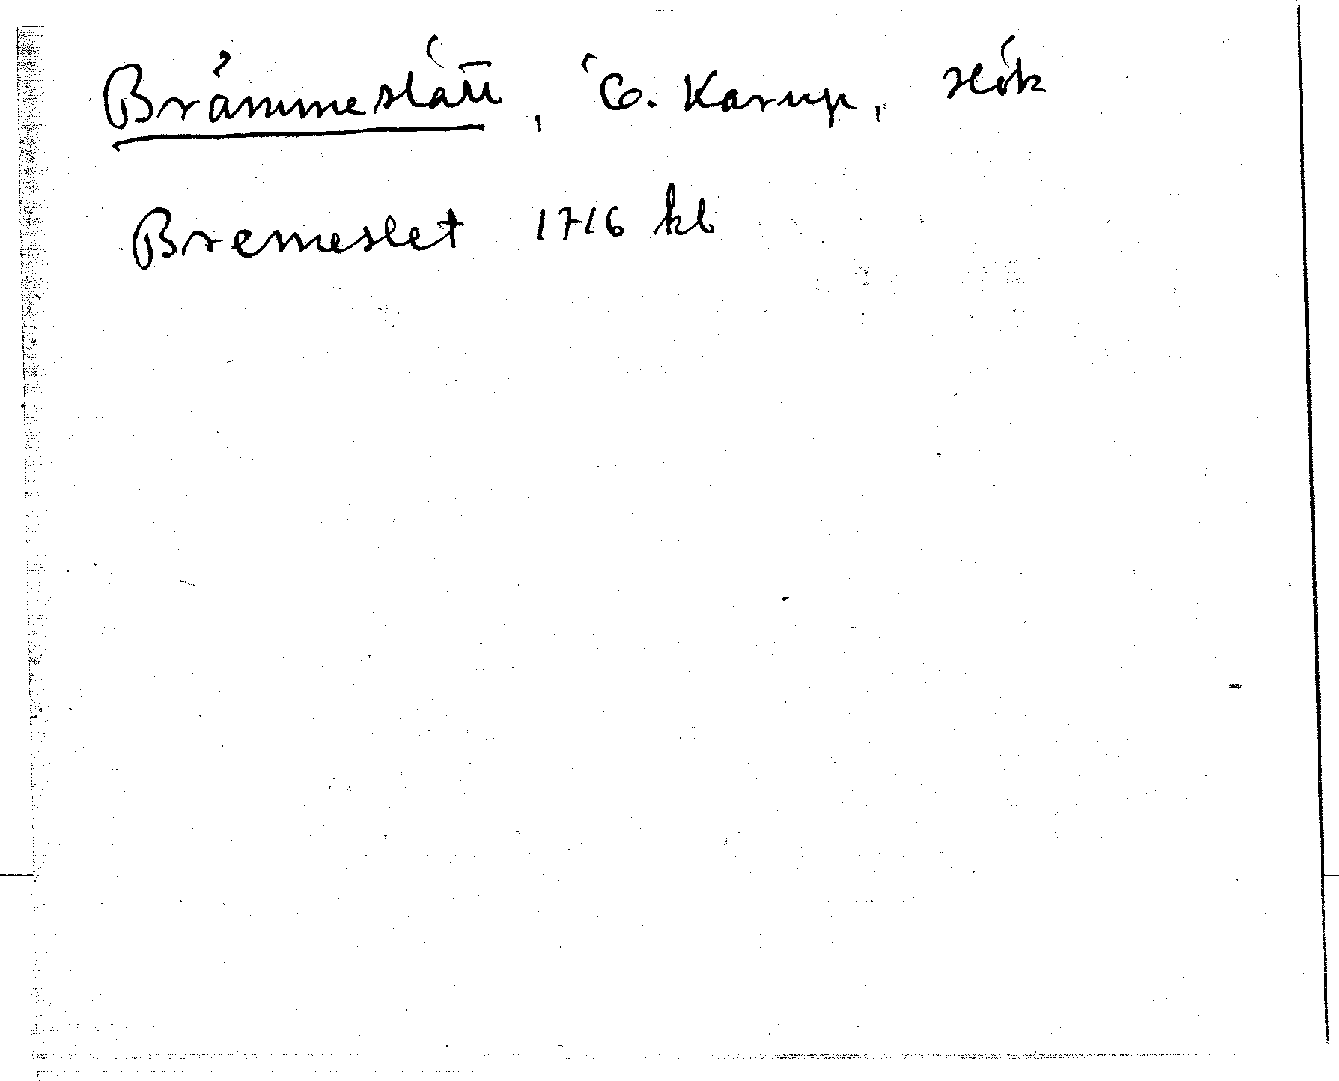 Brämmeslätt, Ö. Karup, Hök
Bremeslet 1716 kb